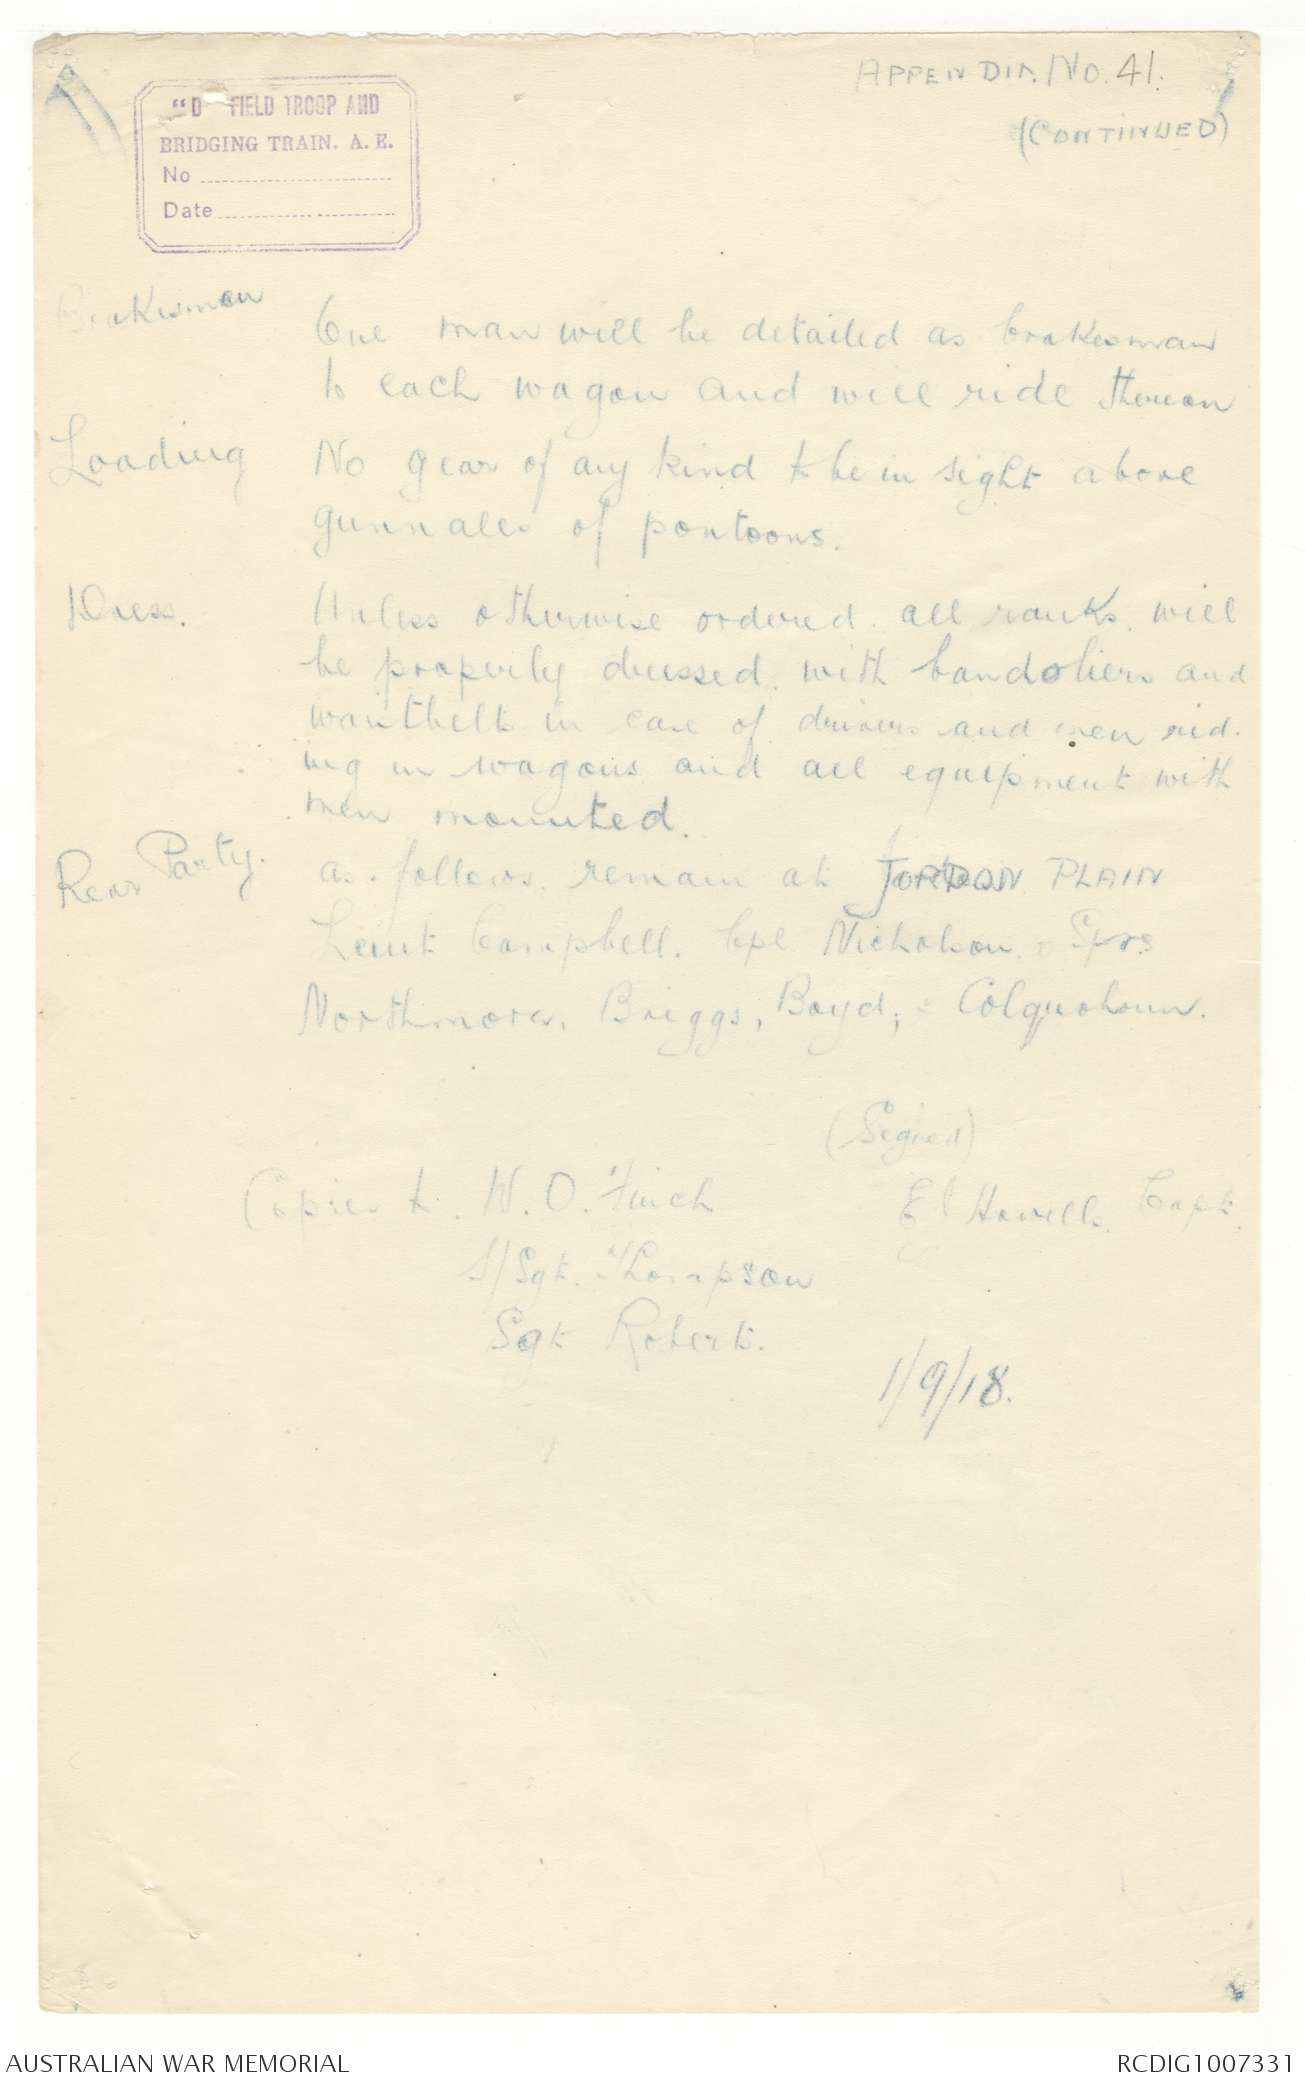 APPENDIX. No. 41.
(CONTINUED)
"D" FIELD TROOP AND
BRIDGING TRAIN. A. E.
No
Date
Brakesmen
One man will be detailed as brakesman
to each wagon and will ride thereon
Loading
No gear of any kind to be in sight above
gunnales of pontoons.
Dress.
Unless otherwise ordered. all ranks. will
be properly dressed. with bandoliers and
waistbelts in case of drivers and men rid-
ing in wagons and all equipment with
men mounted.
Rear Party.
as. follows. remain at JORDON PLAIN
Lieut Campbell. Cpl Nicholson. Sprs
Northmore, Briggs, Boyd, Colquohoun.
(Signed)
Copies to. W. O. Finch
Howells. Capt.
S/Sgt. Thompson
Sgt Roberts.
1/9/18.
AUSTRALIAN WAR MEMORIAL
RCDIG1007331